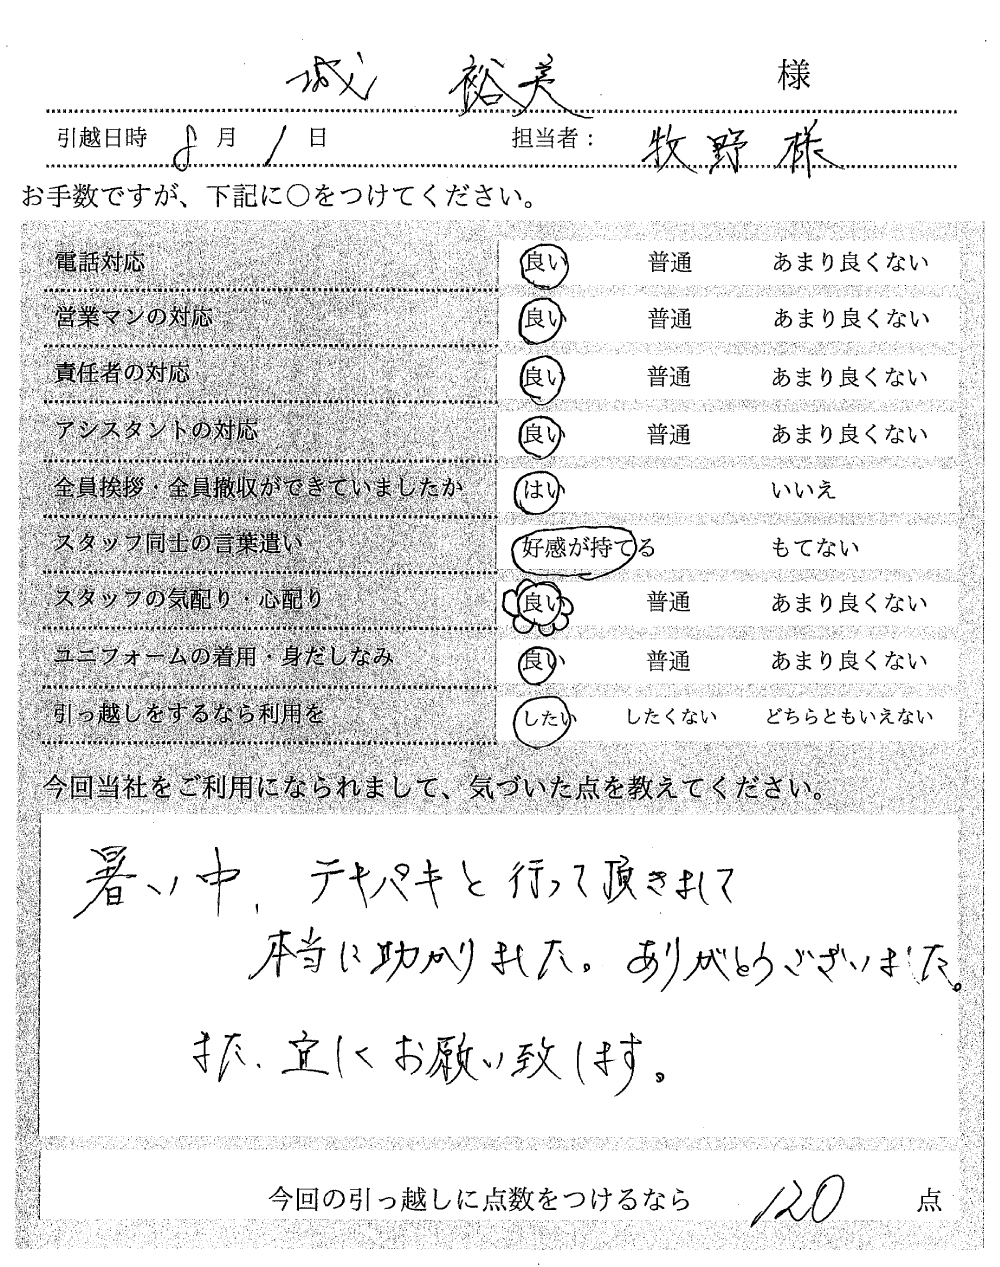 城 裕美 様
引越日時 8月1日 担当者： 牧野様
お手数ですが、下記に〇をつけてください。
電話対応 良い 普通 あまり良くない
営業マンの対応 良い 普通 あまり良くない
責任者の対応 良い 普通 あまり良くない
アシスタントの対応 良い 普通 あまり良くない
全員挨拶・全員撤収ができていましたか はい いいえ
スタッフ同士の言葉遣い 好感が持てる もてない
スタッフの気配り・心配り 良い 普通 あまり良くない
ユニフォームの着用・身だしなみ 良い 普通 あまり良くない
引っ越しをするなら利用を したい したくない どちらともいえない
今回当社をご利用になられまして、気づいた点を教えてください。
暑い中、テキパキと行って頂きまして
本当に助かりました。ありがとうございました。
また、宜しくお願い致します。
今回の引っ越しに点数をつけるなら 120 点